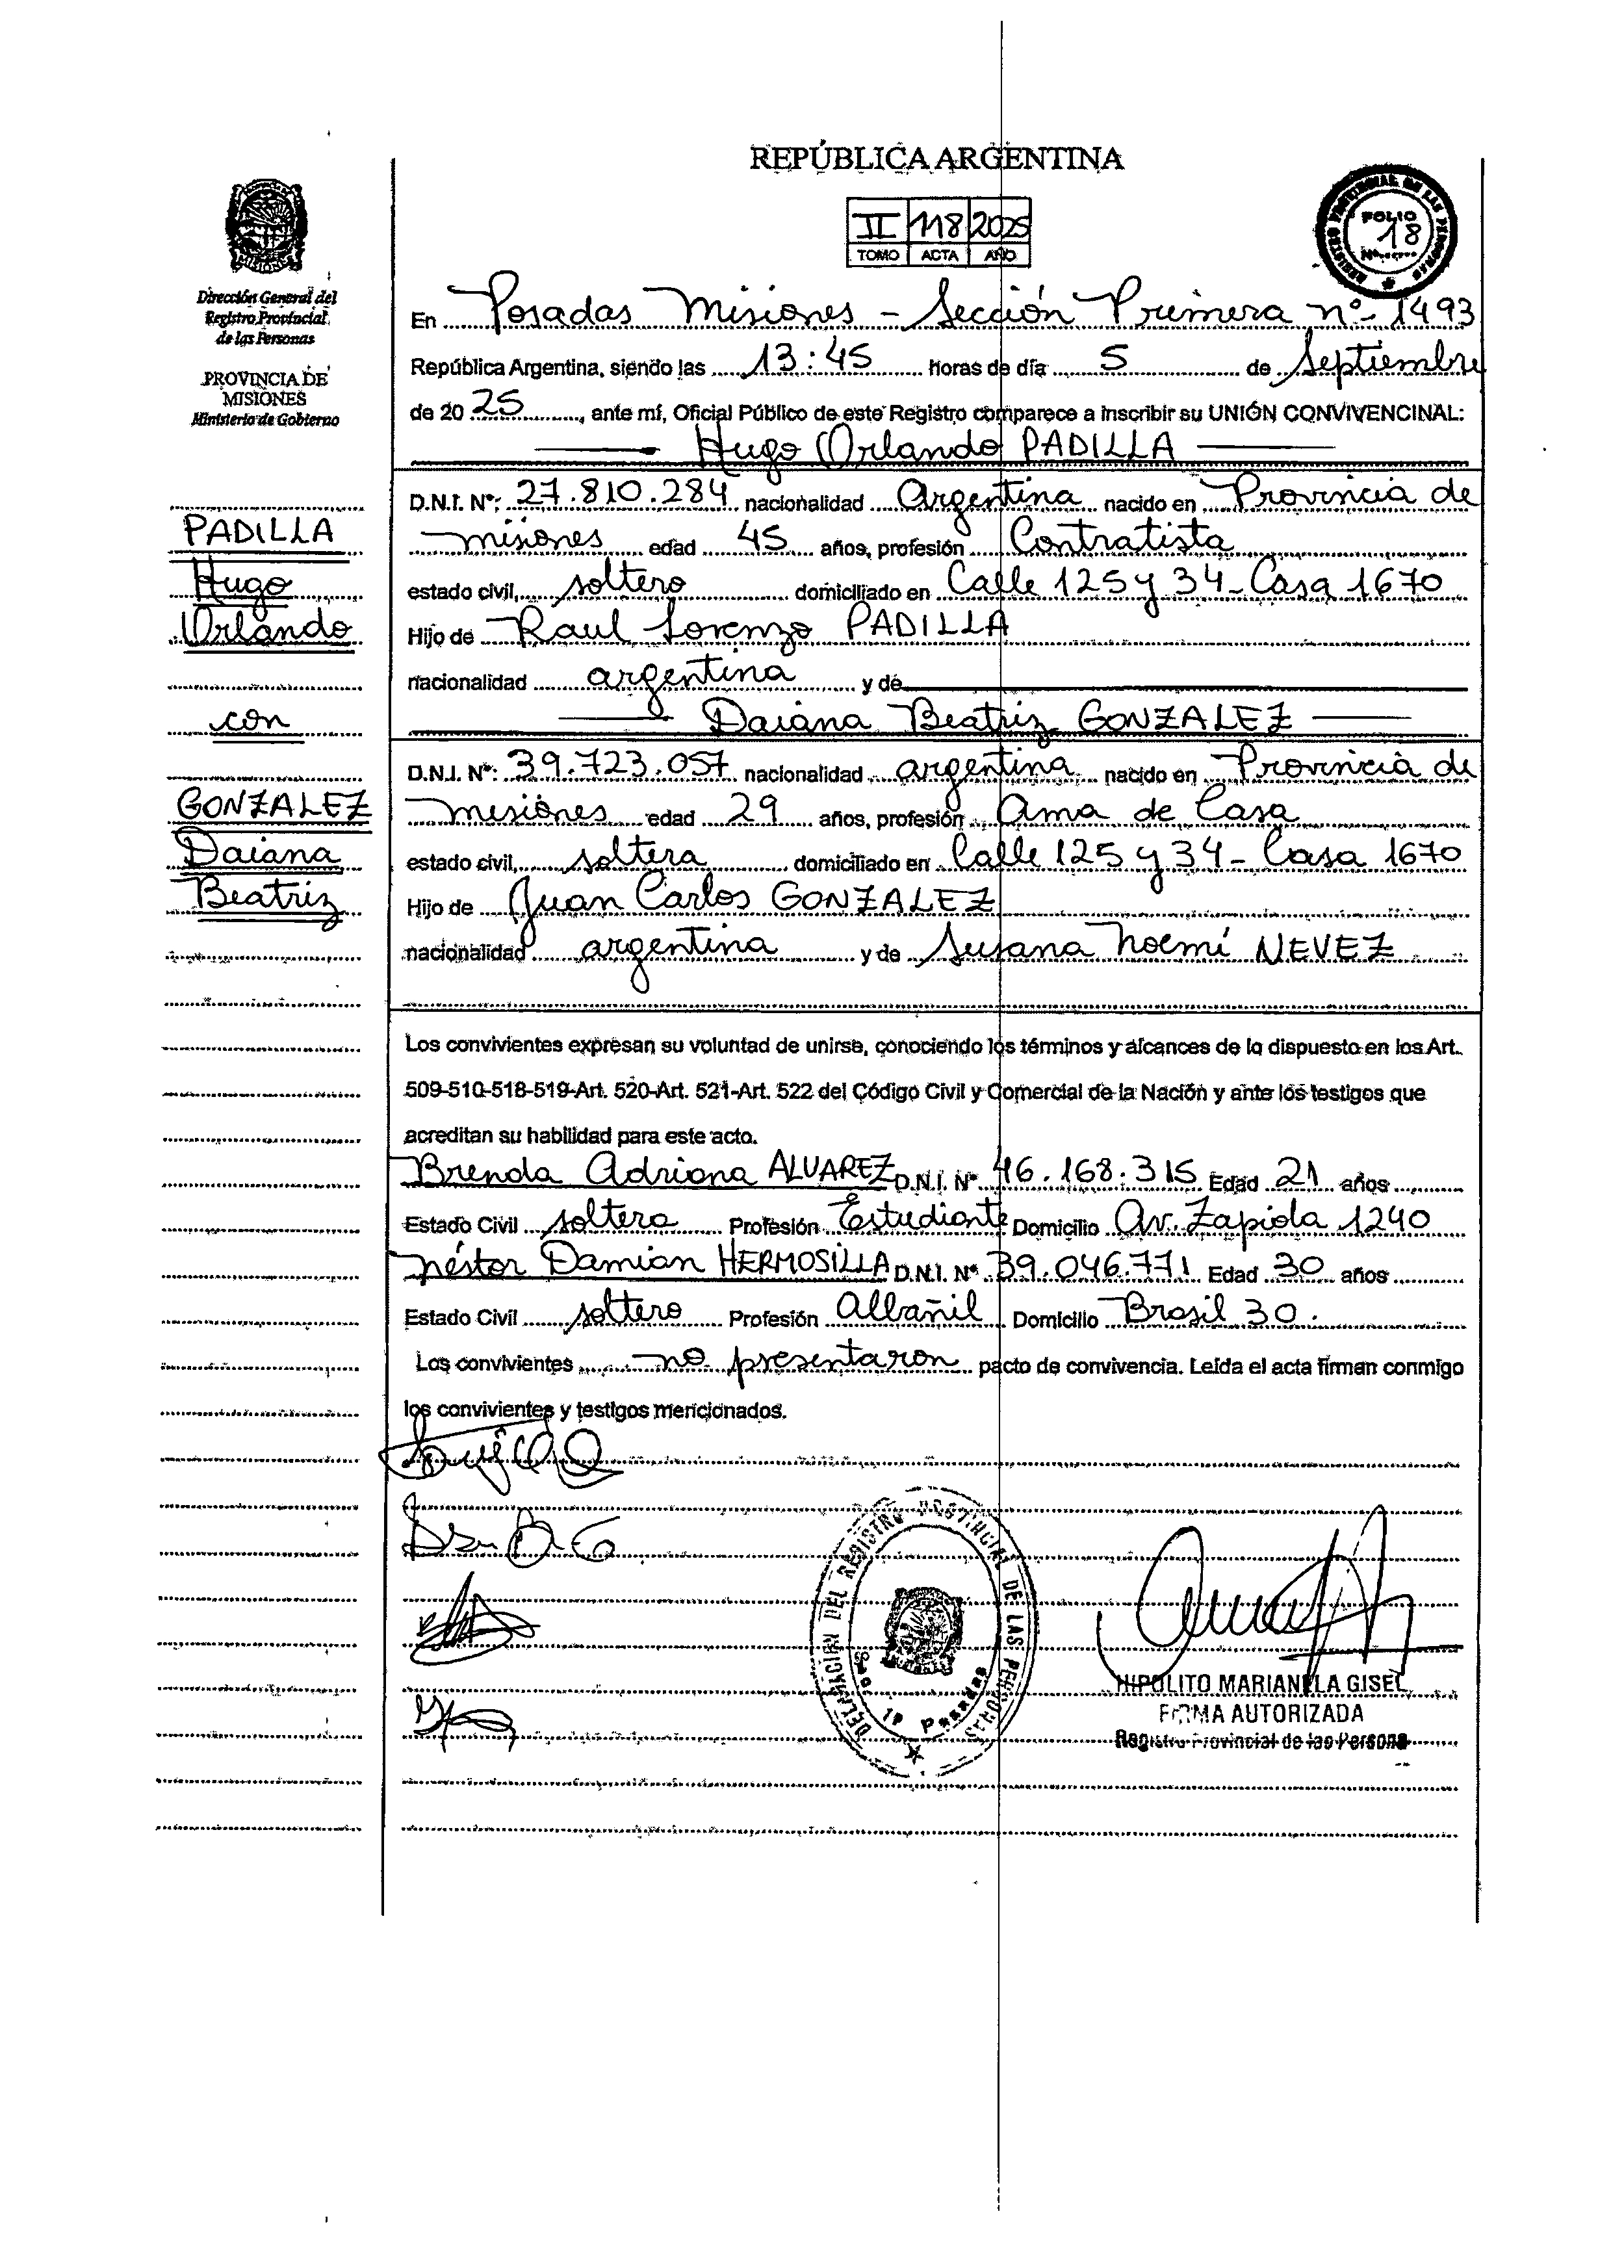 REPÚBLICA ARGENTINA
II 118 2025
TOMO ACTA AÑO
FOLIO
18
MISIONES
Dirección General del
Registro Provincial
de las Personas
PROVINCIA DE
MISIONES
Ministerio de Gobierno
PADILLA
Hugo
Orlando
con
GONZALEZ
Daiana
Beatriz
En Posadas Misiones - Sección Primera nº 1493
República Argentina, siendo las 13:45 horas de día 5 de Septiembre
de 20 25, ante mí, Oficial Público de este Registro comparece a inscribir su UNIÓN CONVIVENCINAL:
Hugo Orlando PADILLA
D.N.I. Nº: 27.810.284 nacionalidad Argentina nacido en Provincia de
misiones edad 45 años, profesión Contratista
estado civil, soltero domiciliado en Calle 125 y 34 - Casa 1670
Hijo de Raul Lorenzo PADILLA
nacionalidad argentina y de
Daiana Beatriz GONZALEZ
D.N.I. Nº: 39.723.057 nacionalidad argentina nacido en Provincia de
misiones edad 29 años, profesión Ama de Casa
estado civil, soltera domiciliado en Calle 125 y 34 - Casa 1670
Hijo de Juan Carlos GONZALEZ
nacionalidad argentina y de Susana Noemí NEVEZ
Los convivientes expresan su voluntad de unirse, conociendo los términos y alcances de lo dispuesto en los Art.
509-510-518-519-Art. 520-Art. 521-Art. 522 del Código Civil y Comercial de la Nación y ante los testigos que
acreditan su habilidad para este acto.
Brenda Adriana ALVAREZ D.N.I. Nº 46.168.315 Edad 21 años
Estado Civil soltera Profesión Estudiante Domicilio Av. Zapiola 1240
Néstor Damian HERMOSILLA D.N.I. Nº 39.046.771 Edad 30 años
Estado Civil soltero Profesión Albañil Domicilio Brasil 30.
Los convivientes no presentaron pacto de convivencia. Leída el acta firman conmigo
los convivientes y testigos mencionados.
DELEGACION DEL REGISTRO PROVINCIAL DE LAS PERSONAS
1ª Posadas
HIPOLITO MARIANELA GISEL
FIRMA AUTORIZADA
Registro Provincial de las Persona